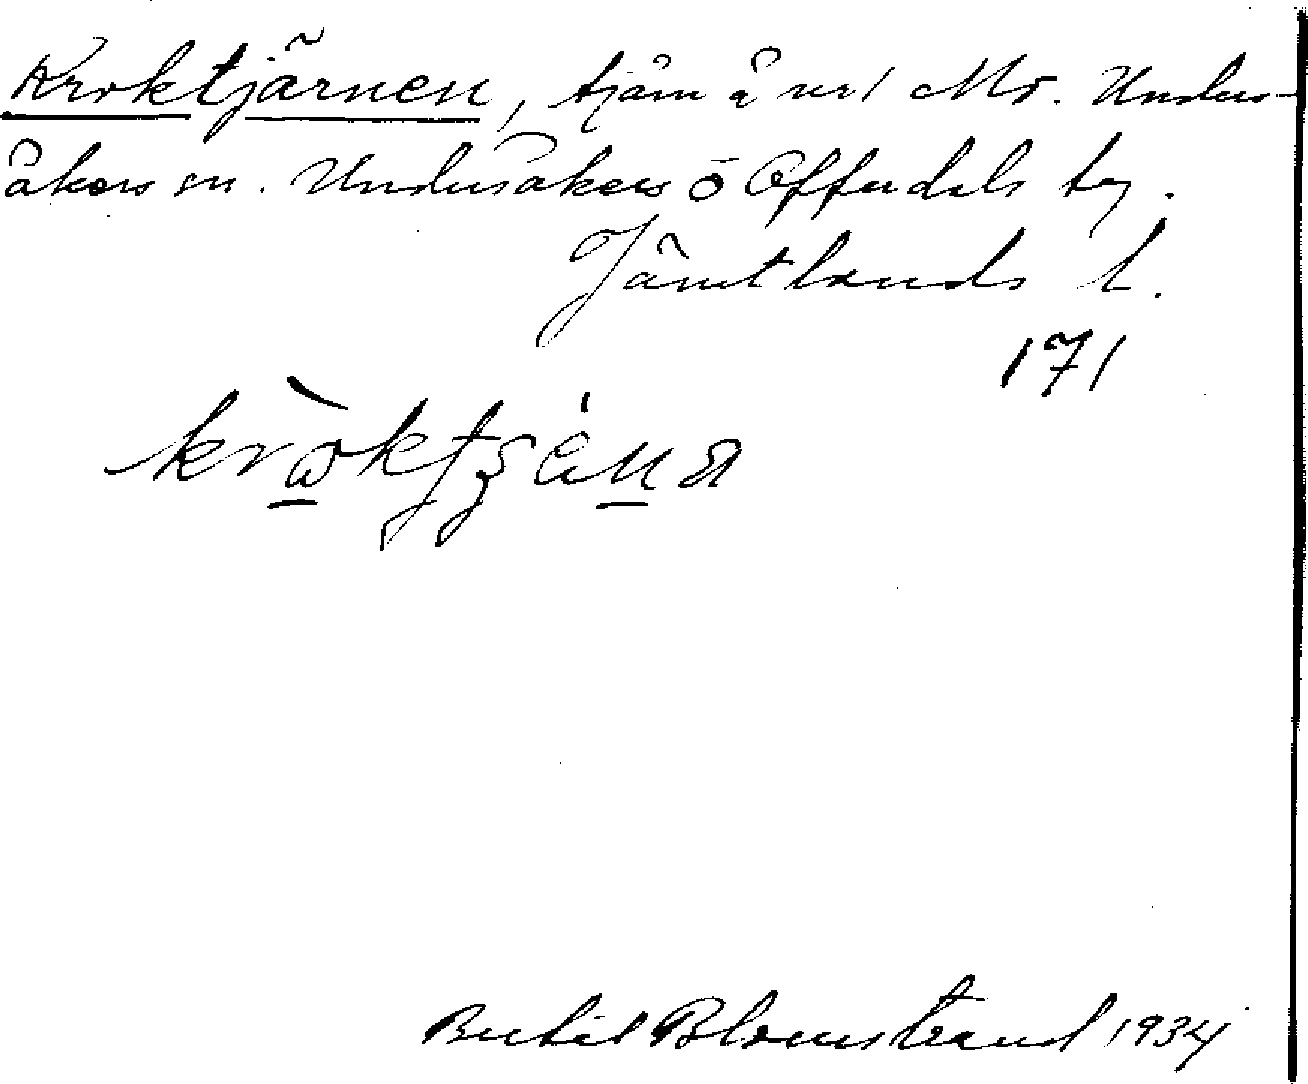 Kroktjärnen, tjärn å nr 1 Mo. Unders-
åkers sn. Undersåkers o Offerdals tg.
Jämtlands l.
171
Bertil Blomstrand 1934